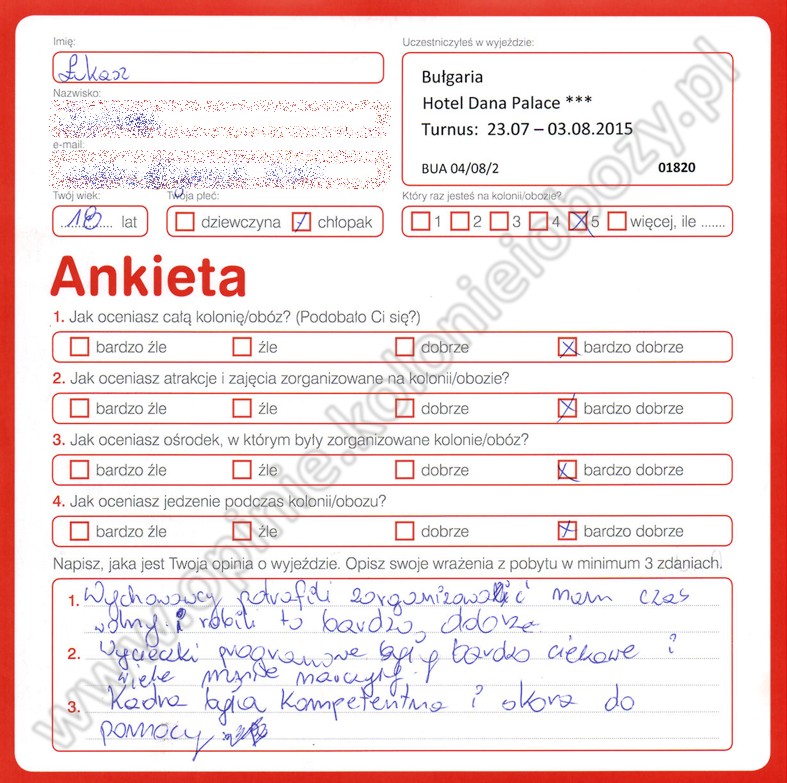 Imię:
Łukasz
Uczestniczyłeś w wyjeździe:
Bułgaria
Hotel Dana Palace ***
Turnus: 23.07 – 03.08.2015
BUA 04/08/2
01820
Nazwisko:
e-mail:
Twój wiek:
18 lat
Twoja płeć:
dziewczyna chłopak
Który raz jesteś na kolonii/obozie?
1 2 3 4 5 więcej, ile .......
Ankieta
1. Jak oceniasz całą kolonię/obóz? (Podobało Ci się?)
bardzo źle źle dobrze bardzo dobrze
2. Jak oceniasz atrakcje i zajęcia zorganizowane na kolonii/obozie?
bardzo źle źle dobrze bardzo dobrze
3. Jak oceniasz ośrodek, w którym były zorganizowane kolonie/obóz?
bardzo źle źle dobrze bardzo dobrze
4. Jak oceniasz jedzenie podczas kolonii/obozu?
bardzo źle źle dobrze bardzo dobrze
Napisz, jaka jest Twoja opinia o wyjeździe. Opisz swoje wrażenia z pobytu w minimum 3 zdaniach.
1. Wychowawcy potrafili zorganizować nam czas
wolny i robili to bardzo dobrze
2. Wycieczki programowe były bardzo ciekawe i
wiele mnie nauczyły.
3. Kadra była kompetentna i skora do
pomocy
www.opinie.kolonieiobozy.pl